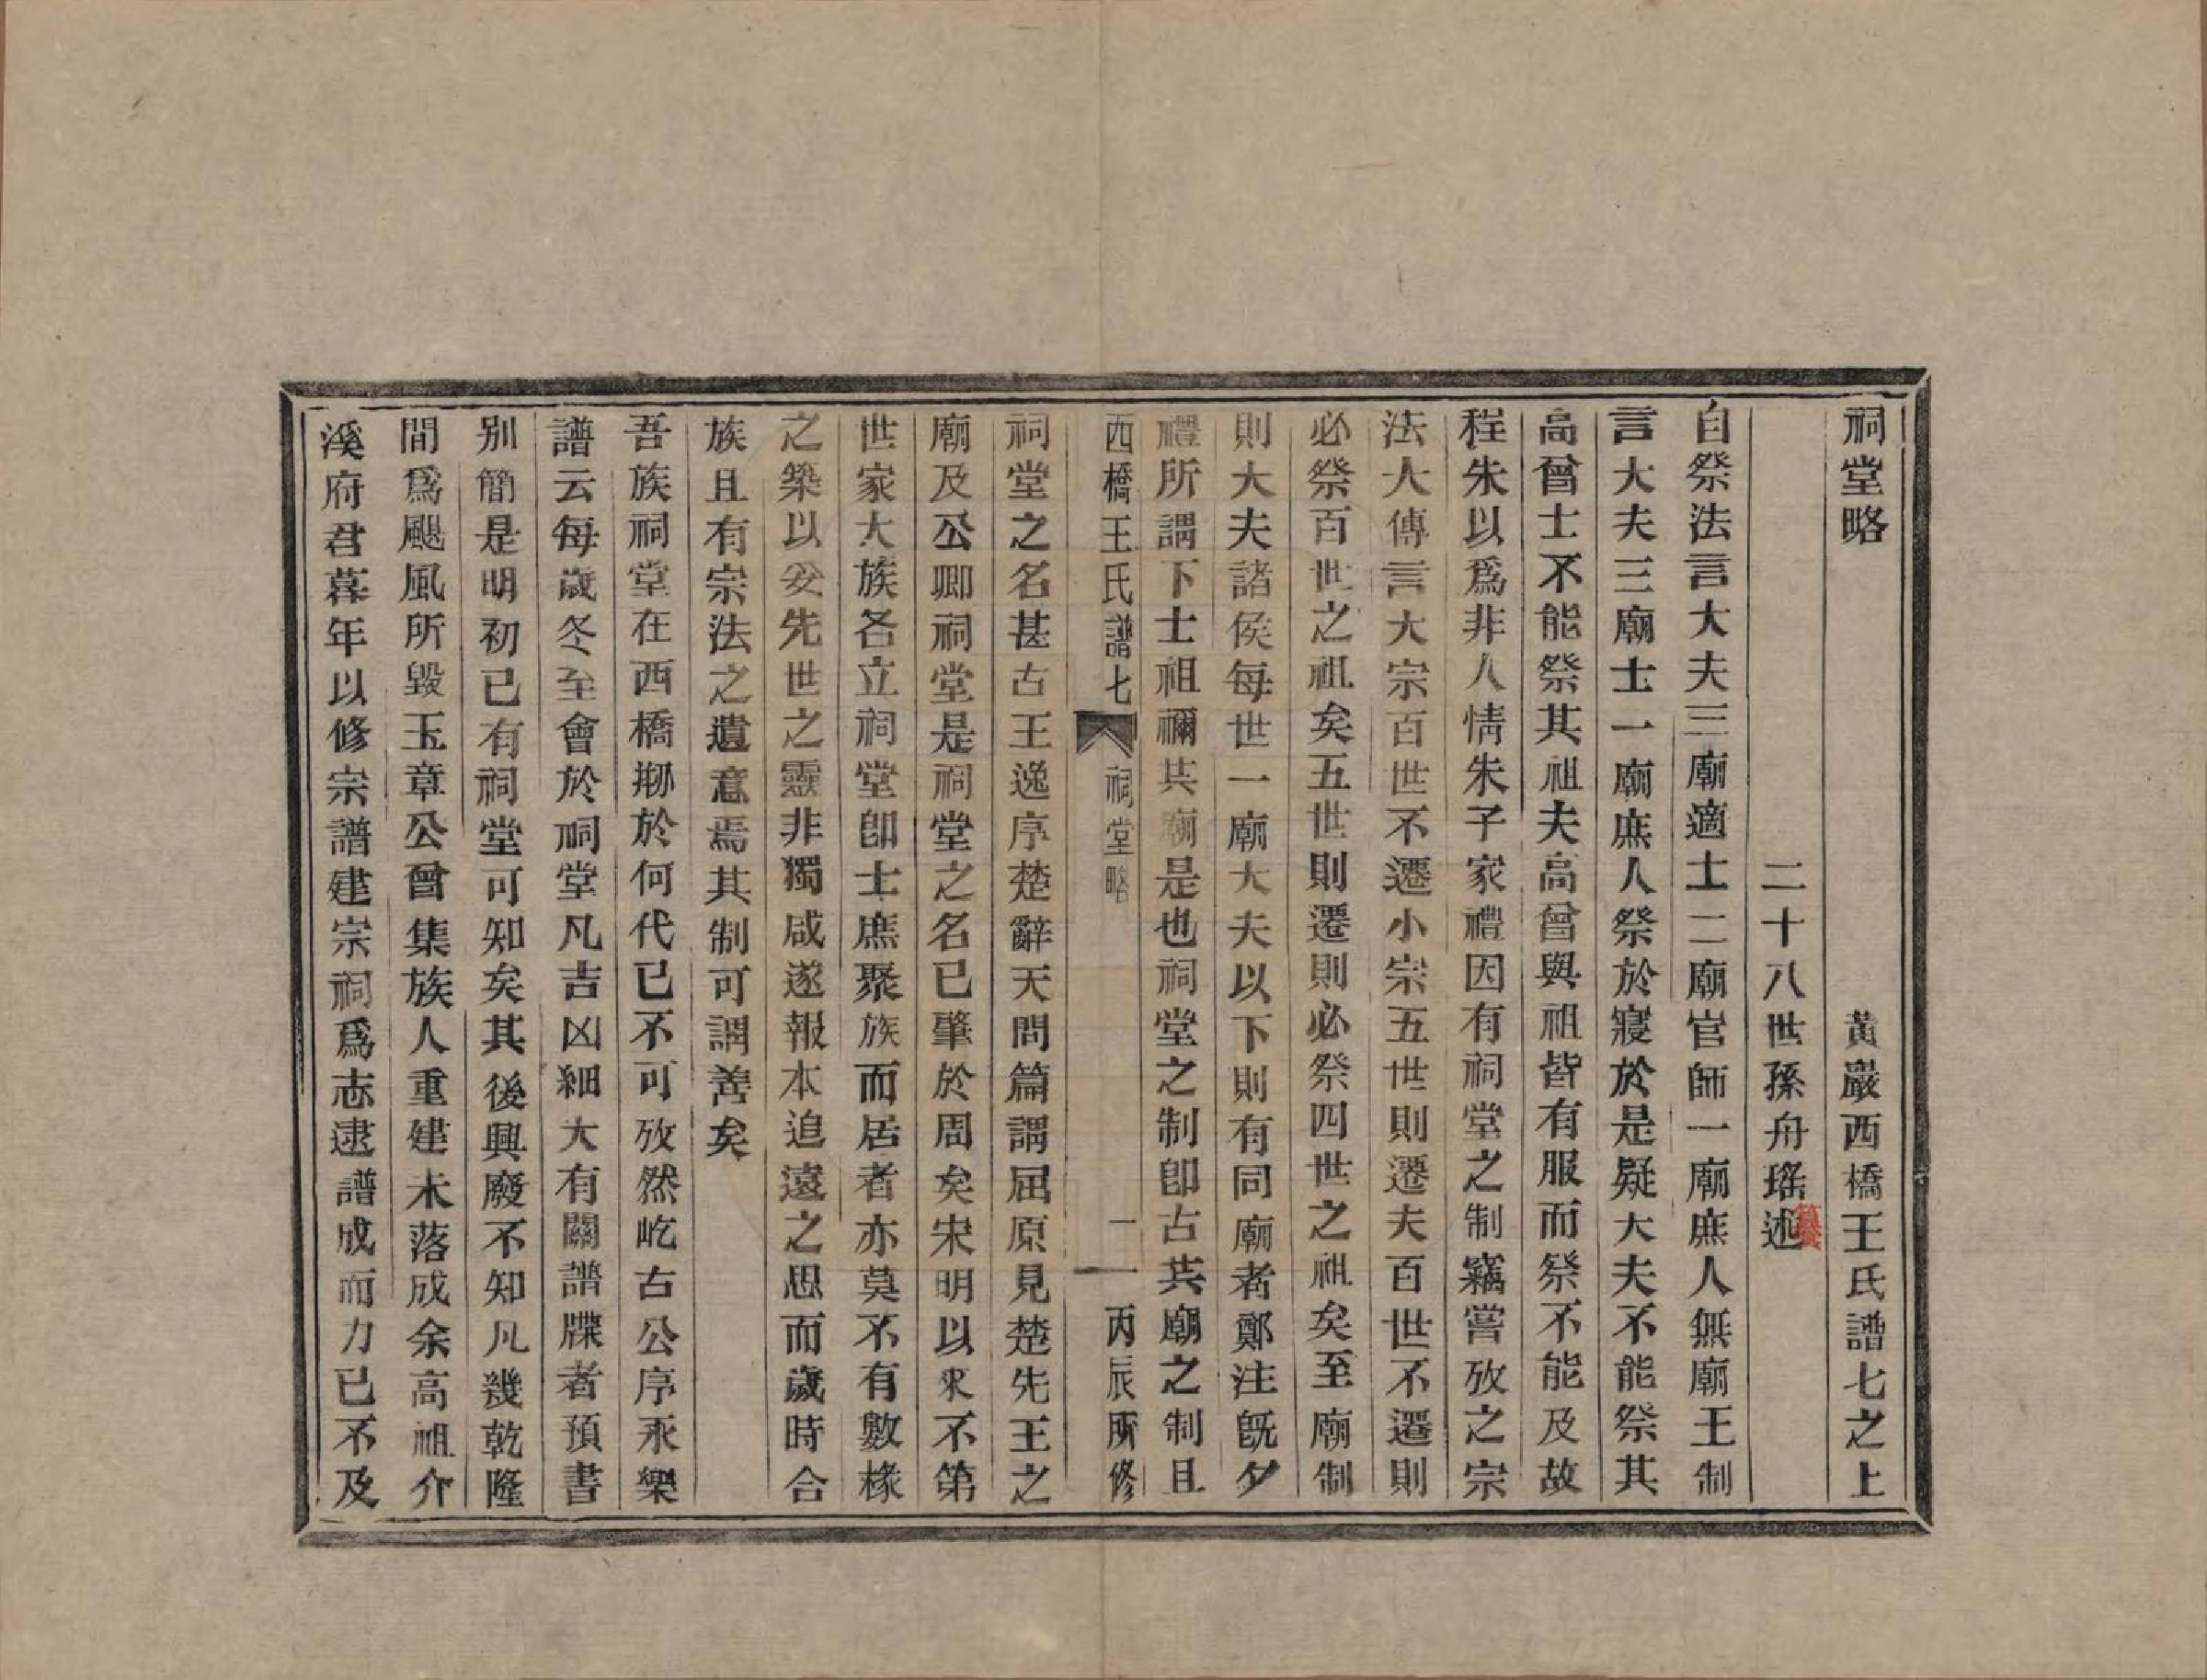 祠堂略 黃巖西橋王氏譜七之上
二十八世孫舟瑤述
纂
自祭法言大夫三廟適士二廟官師一廟庶人無廟王制
言大夫三廟士一廟庶人祭於寢於是疑大夫不能祭其
高曾士不能祭其祖夫高曾與祖皆有服而祭不能及故
程朱以爲非人情朱子家禮因有祠堂之制竊嘗攷之宗
法大傳言大宗百世不遷小宗五世則遷夫百世不遷則
必祭百世之祖矣五世則遷則必祭四世之祖矣至廟制
則大夫諸侯每世一廟大夫以下則有同廟者鄭注旣夕
禮所謂下士祖禰共廟是也祠堂之制卽古共廟之制且
西橋王氏譜七 祠堂略 一 丙辰所修
祠堂之名甚古王逸序楚辭天問篇謂屈原見楚先王之
廟及公卿祠堂是祠堂之名已肇於周矣宋明以來不第
世家大族各立祠堂卽士庶聚族而居者亦莫不有數椽
之築以妥先世之靈非獨咸遂報本追遠之思而歲時合
族且有宗法之遺意焉其制可謂善矣
吾族祠堂在西橋剏於何代已不可攷然屹古公序永樂
譜云每歲冬至會於祠堂凡吉凶細大有關譜牒者預書
别簡是明初已有祠堂可知矣其後興廢不知凡幾乾隆
間爲颶風所毀玉章公曾集族人重建未落成余高祖介
溪府君暮年以修宗譜建宗祠爲志逮譜成而力已不及